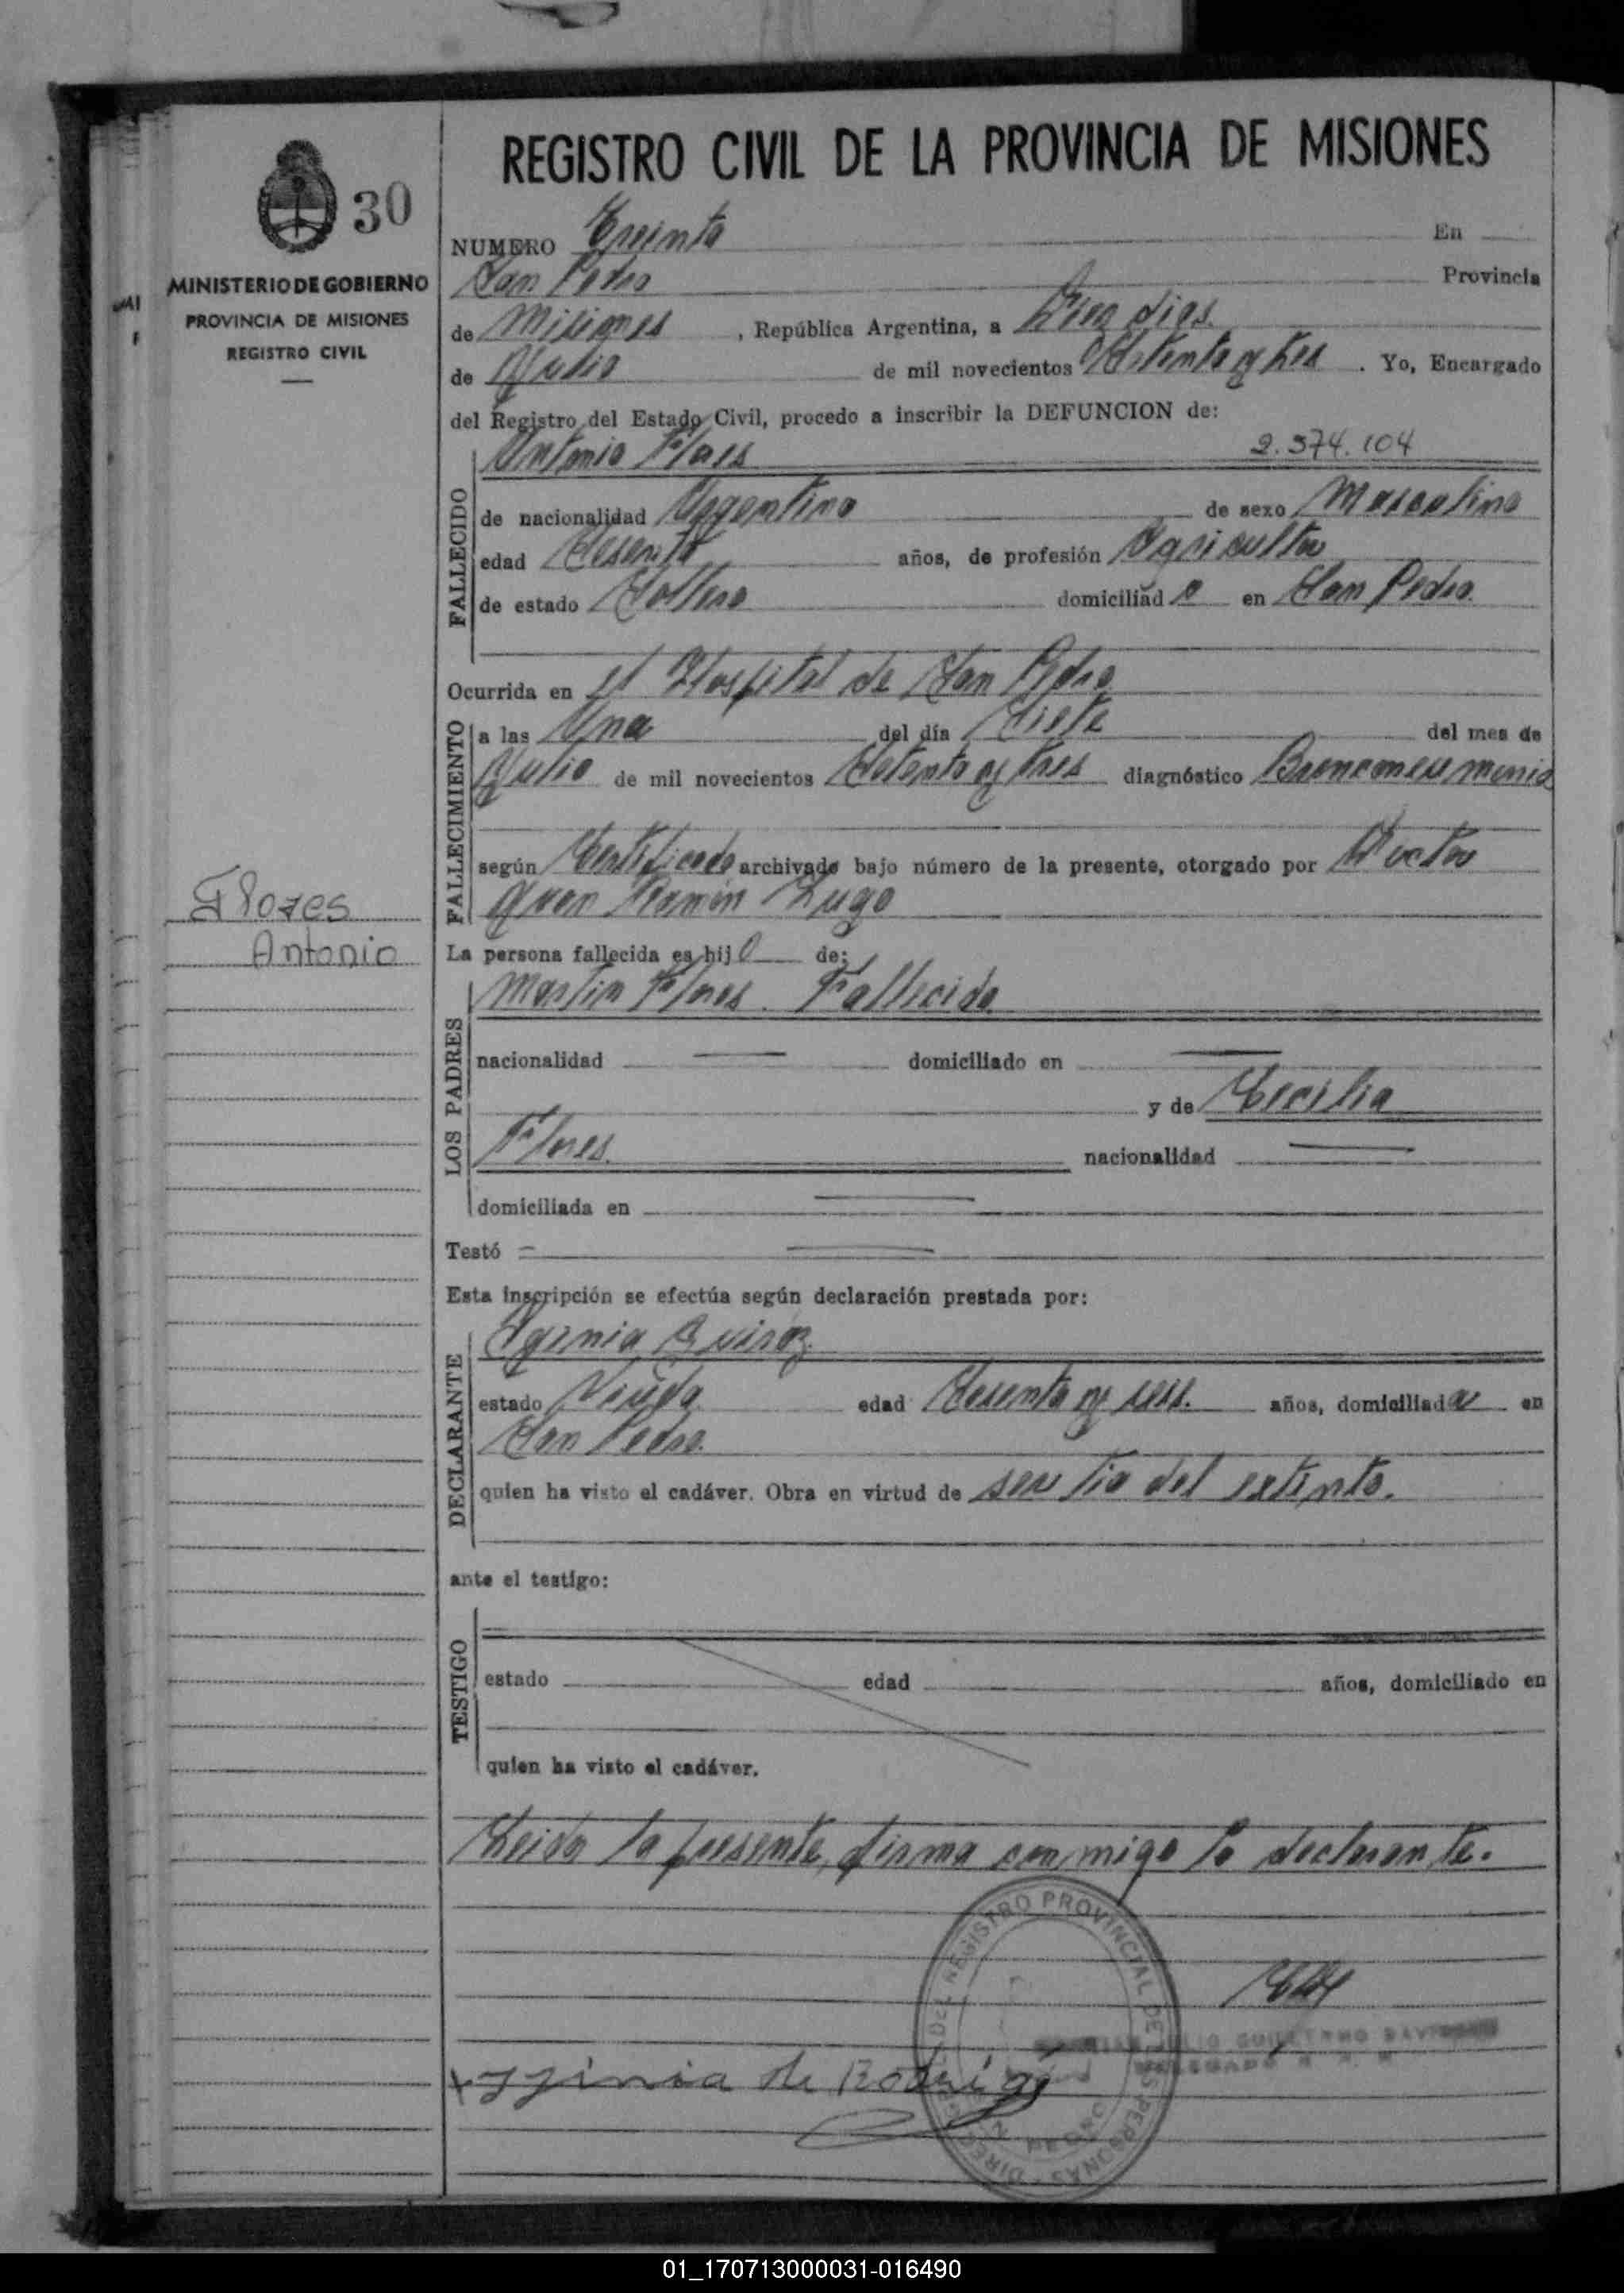 REGISTRO CIVIL DE LA PROVINCIA DE MISIONES
30
MINISTERIO DE GOBIERNO
PROVINCIA DE MISIONES
REGISTRO CIVIL
NUMERO Treinta En
San Pedro Provincia
de Misiones, República Argentina, a Diez dias
de Julio de mil novecientos Setenta y tres. Yo, Encargado
del Registro del Estado Civil, procedo a inscribir la DEFUNCION de:
Antonio Flores 2.374.104
FALLECIDO
de nacionalidad Argentino de sexo Masculino
edad Sesenta años, de profesión Agricultor
de estado Soltero domiciliado en San Pedro
Ocurrida en el Hospital de San Pedro
FALLECIMIENTO
a las Una del día Siete del mes de
Julio de mil novecientos Setenta y tres diagnóstico Bronconeumonia
según Certificado archivado bajo número de la presente, otorgado por Doctor
Juan Ramón Lugo
Flores
Antonio
La persona fallecida es hijo de:
LOS PADRES
Martin Flores. Fallecido.
nacionalidad — domiciliado en —
y de Cecilia
Flores. nacionalidad —
domiciliada en —
Testó —
Esta inscripción se efectúa según declaración prestada por:
DECLARANTE
Quiroz.
estado Viuda edad Sesenta y seis. años, domiciliada en
San Pedro.
quien ha visto el cadáver. Obra en virtud de ser tia del extinto.
ante el testigo:
TESTIGO
estado edad años, domiciliado en
quien ha visto el cadáver.
Leida la presente, firma conmigo la declarante.
REGISTRO PROVINCIAL DE LAS PERSONAS
de
01_170713000031-016490